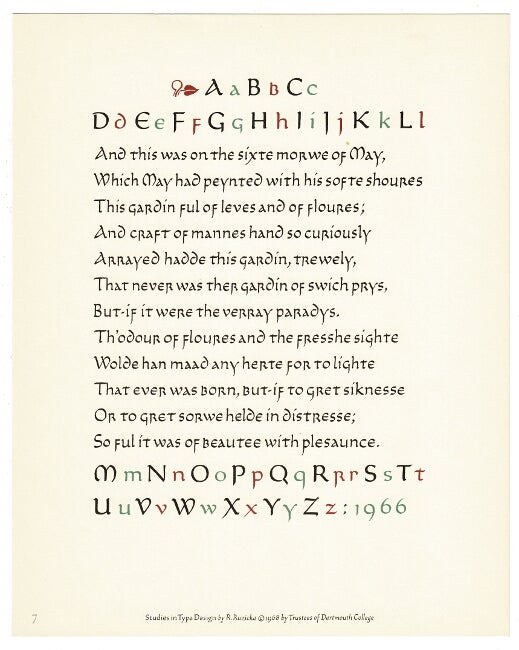 A a B b C c
D d E e F f G g H h I i J j K k L l
And this was on the sixte morwe of May,
Which May had peynted with his softe shoures
This gardin ful of leves and of floures;
And craft of mannes hand so curiously
Arrayed hadde this gardin, trewely,
That never was ther gardin of swich prys,
But-if it were the verray paradys.
Th'odour of floures and the fresshe sighte
Wolde han maad any herte for to lighte
That ever was born, but-if to gret siknesse
Or to gret sorwe helde in distresse;
So ful it was of beautee with plesaunce.
M m N n O o P p Q q R r r S s T t
U u V v W w X x Y y Z z : 1966
7
Studies in Type Design by R. Ruzicka © 1968 by Trustees of Dartmouth College